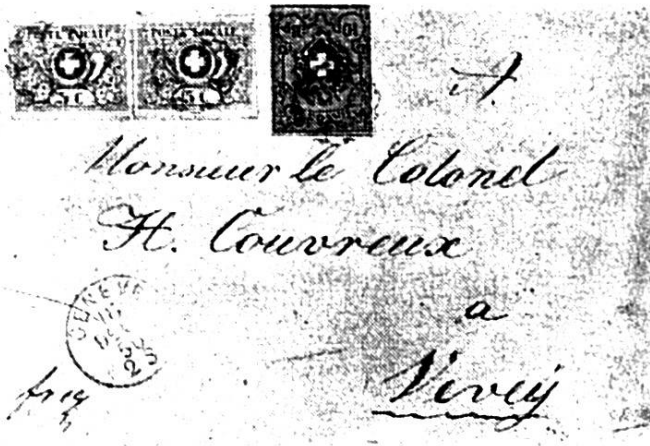 POSTE LOCALE POSTE LOCALE
5 C 5 C
A
Monsieur le Colonel
H. Couvreux
a
Vevey
GENEVE